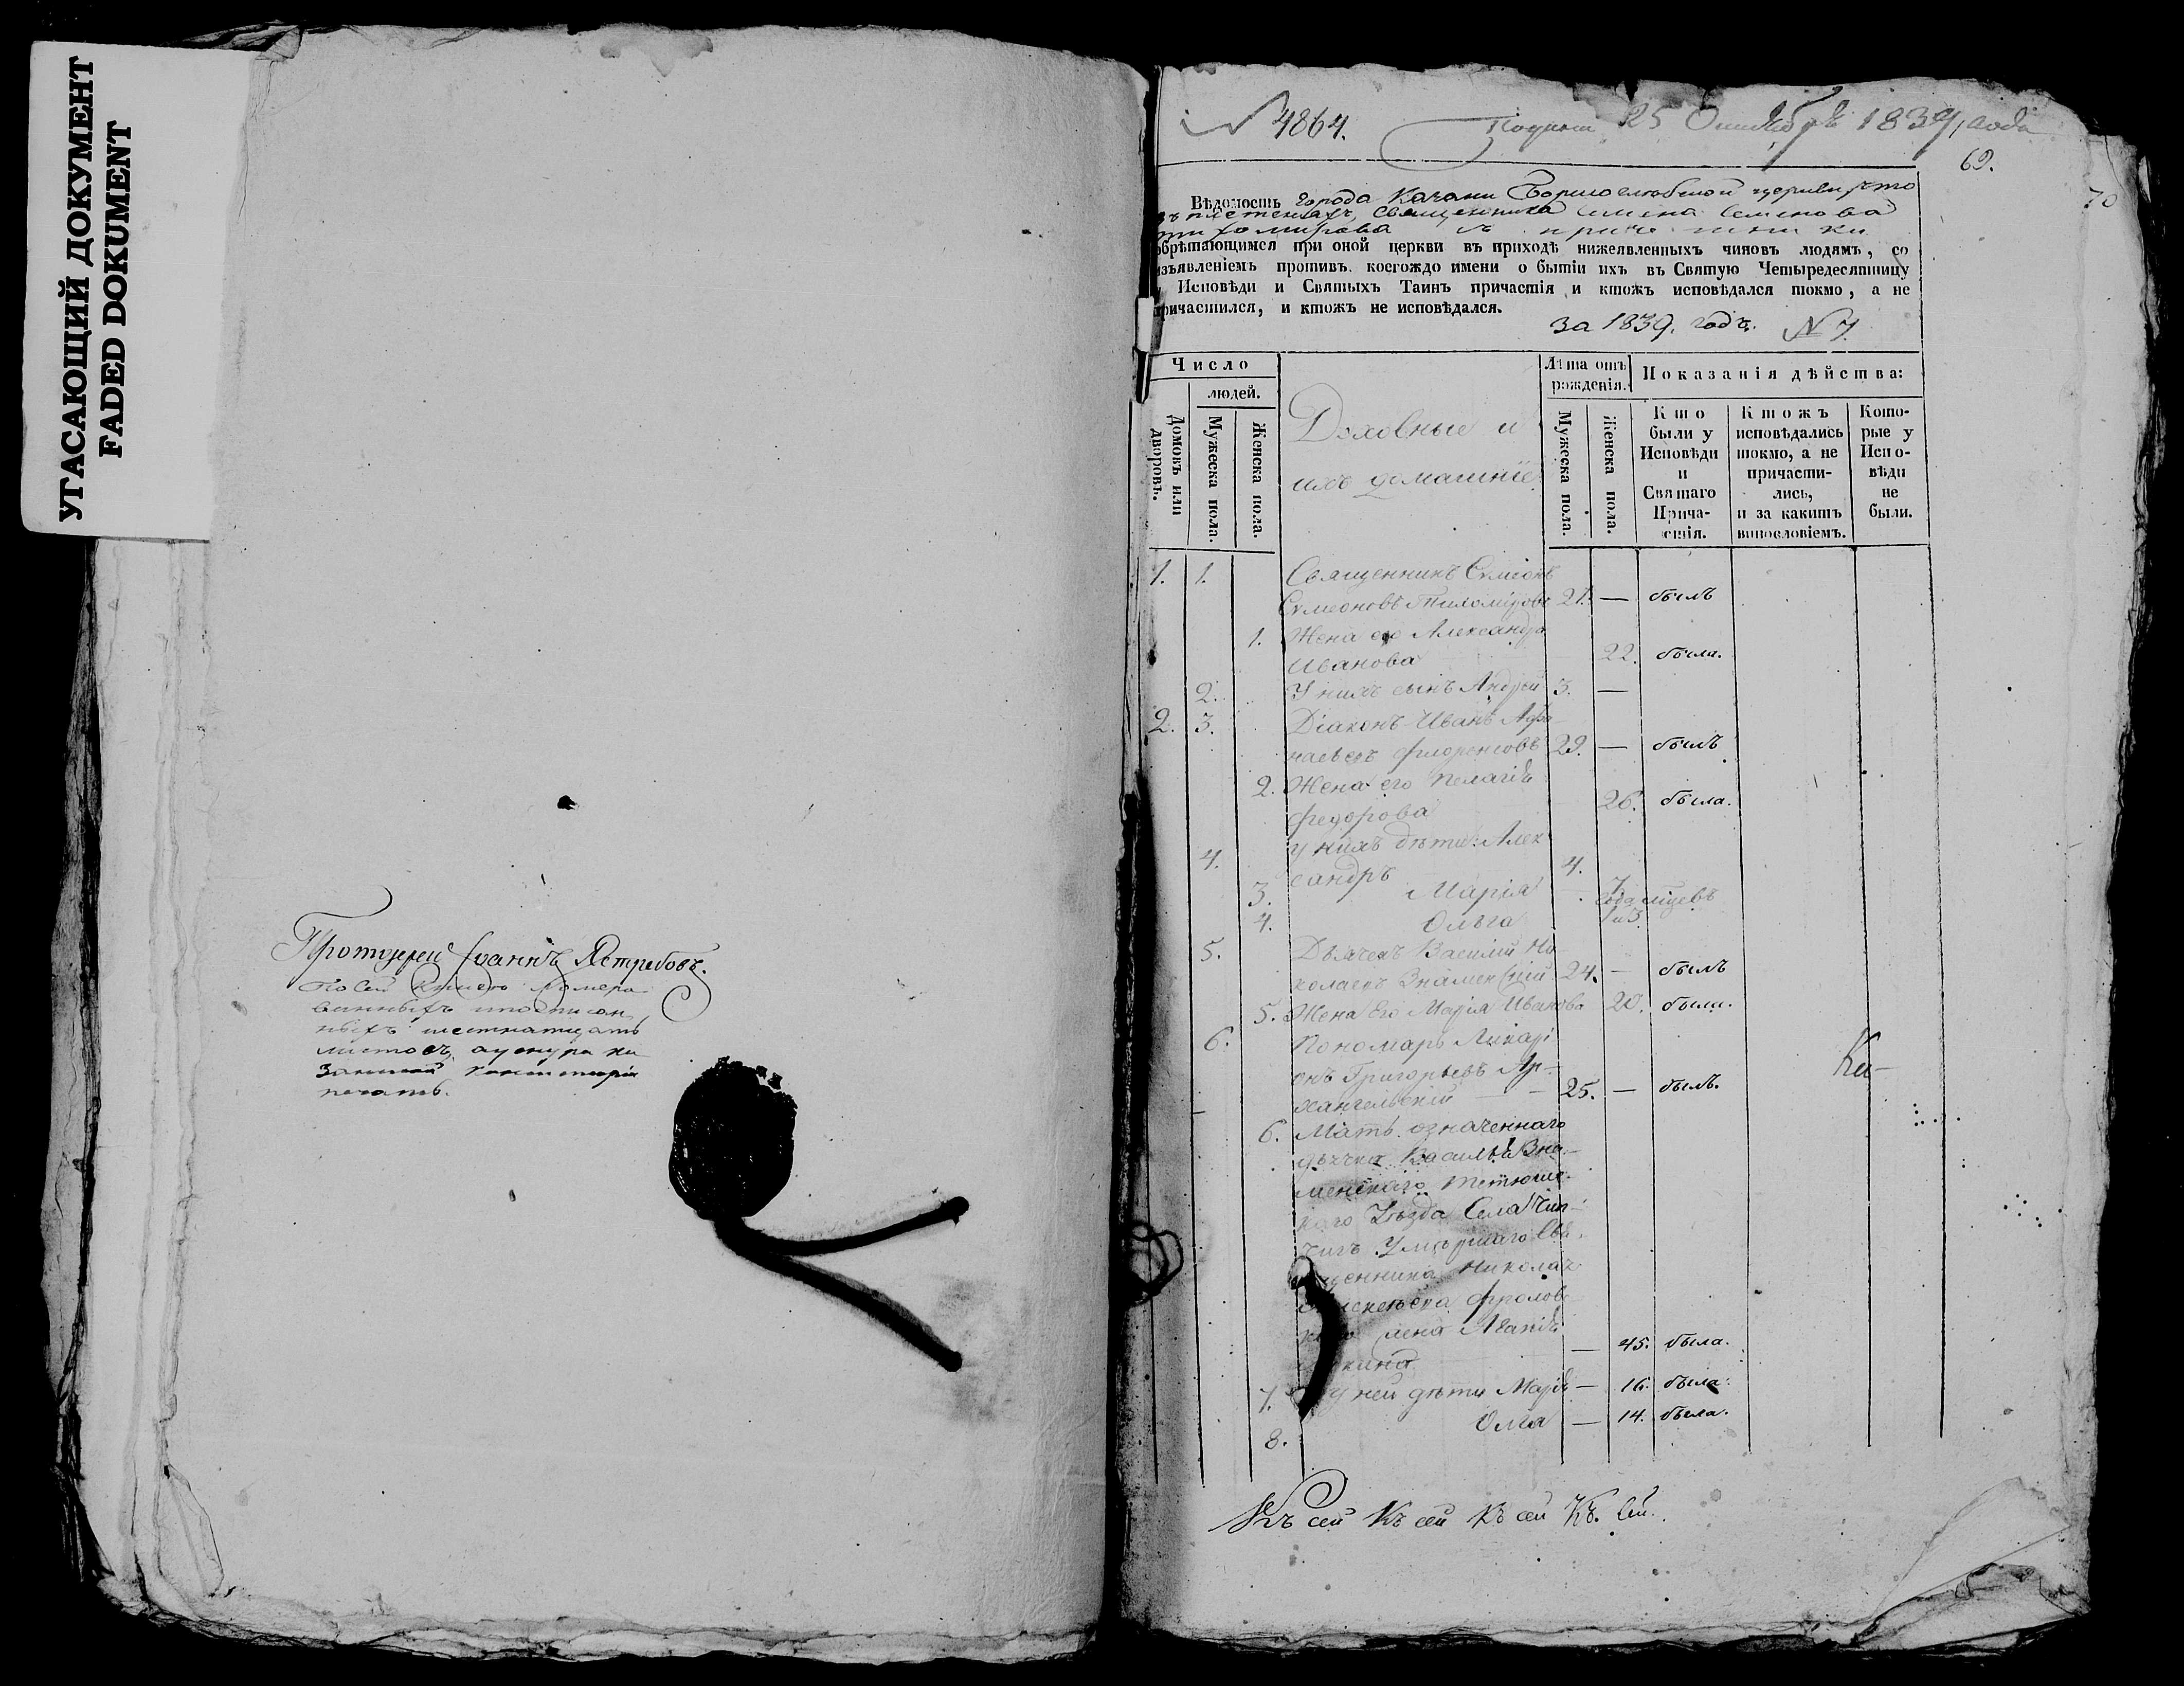 УГАСАЮЩИЙ ДОКУМЕНТ
FADED DOKUMENT
Протоіерей Іоаннъ Ястребовъ.
По сей книгѣ номеро
ванныхъ
ныхъ шестнатцать
листовъ,
печать.
№ 4864.
25 Октября 1839 года
69.
70
Вѣдомость города Казани Борисоглѣбской церкви что
въ плетеняхъ, священника симена Семенова
тихомирова съ
обрѣтающимся при оной церкви въ приходѣ нижеявленныхъ чиновъ людямъ, со
изъявленіемъ противъ коегождо имени о бытіи ихъ въ Святую Четыредесятницу
у Исповѣди и Святыхъ Таинъ причастія и ктожъ исповѣдался токмо, а не
причастился, и ктожъ не исповѣдался.
за 1839. годъ. № 7
Число
людей.
Домовъ или дворовъ.
Мужеска пола.
Женска пола.
Духовные и
ихъ домашніе
Лѣта отъ рожденія.
Мужеска пола.
Женска пола.
Показанія дѣйства:
Кто были у Исповѣди и Святаго Причастія.
Ктожъ исповѣдались токмо, а не причастились, и за какимъ винословіемъ.
Которые у Исповѣди не были.
1. 1. Священникъ Сѵмеонъ
Сѵмеоновъ Тихомировъ 21. — былъ
1. Жена его Александра
Иванова 22. была.
2. У нихъ сынъ Андрей 3. —
2. 3. Діаконъ Иванъ Афа
насьевъ Флоренсовъ 29. — былъ
2. Жена его Пелагія
Федорова 26. была.
4. У нихъ дѣти: Алек
сандръ 4.
3. Марія 7
года мцевъ
4. Ольга 1 и 3
5. Дьячекъ Василій Ни
колаевъ Знаменскій 24. — былъ
5. Жена Его Марія Иванова 20. была.
6. Пономарь Макарі
онъ Григорьевъ Ар-
хангельскій 25. — былъ. Ка-
6. Мать означеннаго
дьячка Василья Зна-
менскаго тетюшс-
каго Уѣзда Села Чин-
чигъ Умершаго Свя
щенника Николая
Фролов
жена Агапія
— 45. была.
7. у ней дѣти Марія — 16. была.
8. Олга — 14. была.
Къ сей Къ сей Къ сей Къ. Сей.